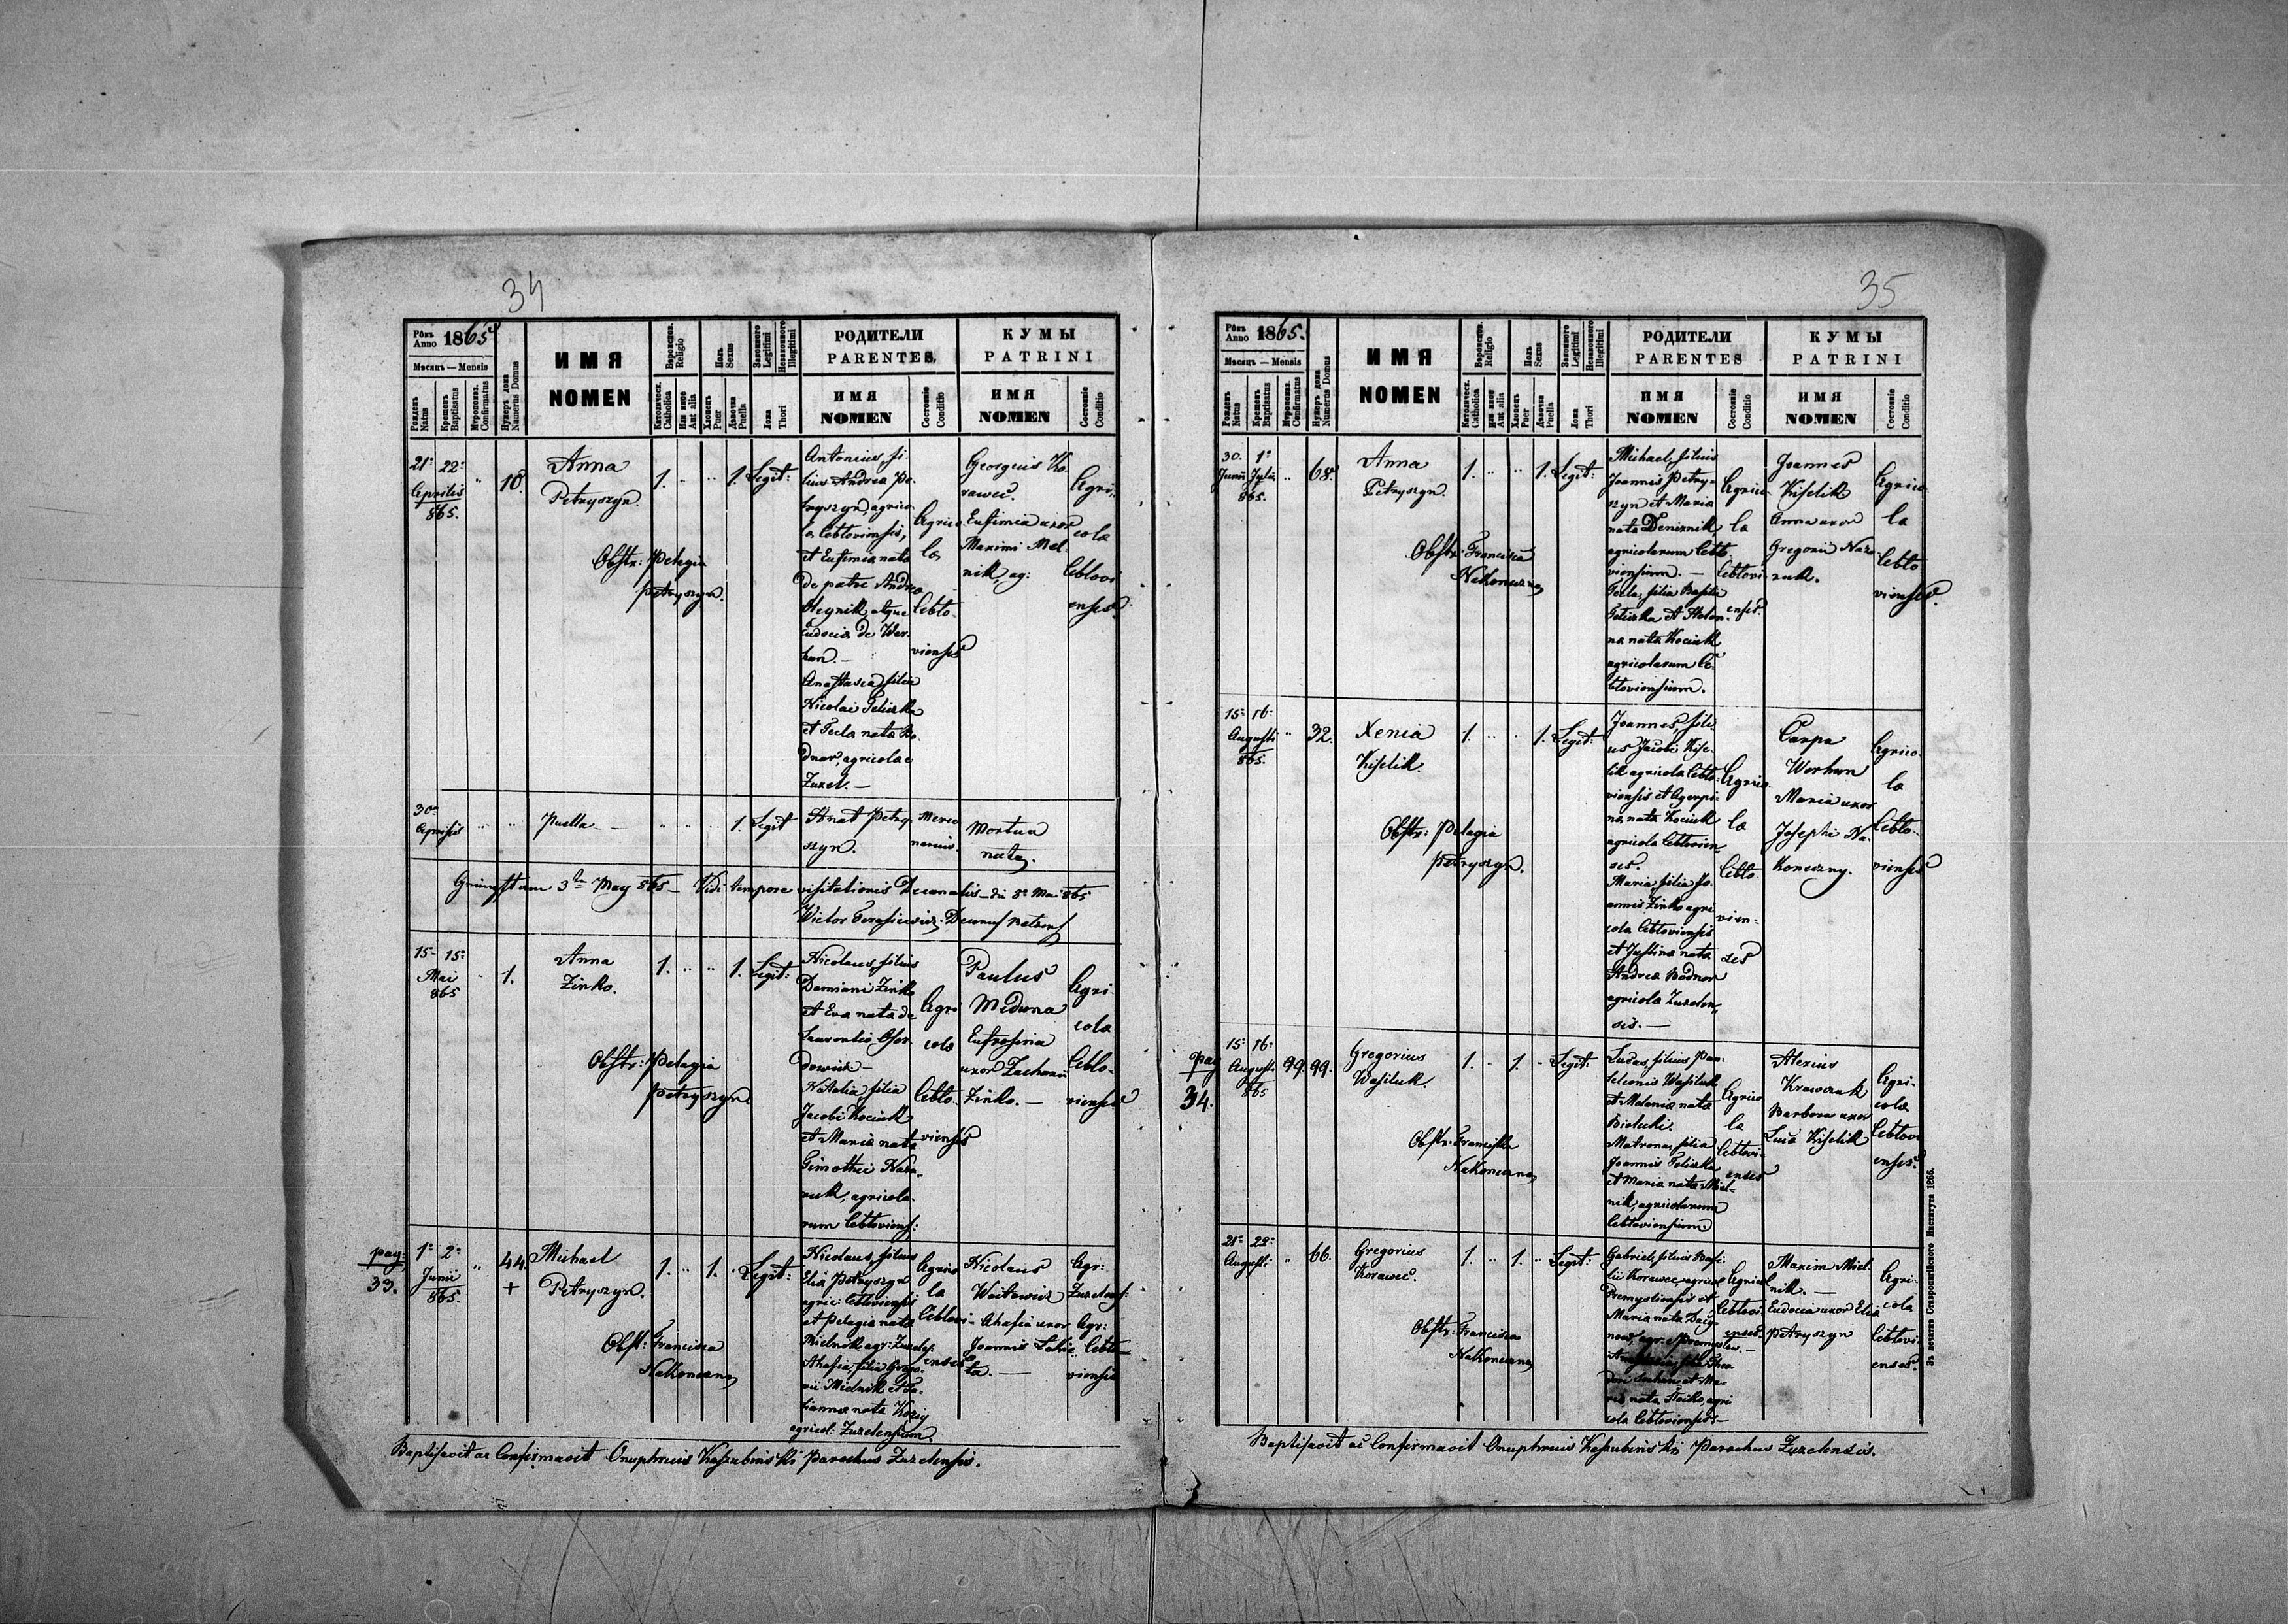 34
Рôкъ Anno 1865
Мѣсяцъ — Mensis
Рожденъ Natus
Крещенъ Baptisatus
Мѵропом. Confirmatus
Нумеръ дома Numerus Domus
ИМЯ
NOMEN
Religio
Католическ. Catholica
Aut alia
Полъ Sexus
Хлопецъ Puer
Дѣвочка Puella
Законного Legitimi
Незаконного Illegitimi
Ложа Thori
РОДИТЕЛИ
PARENTES
ИМЯ
NOMEN
Состояніе Conditio
КУМЫ
PATRINI
ИМЯ
NOMEN
Состояніе Conditio
21a 22a
Aprilis
865.
10.
Anna
Petryszyn.
1. " " 1. Legit:
Obstr: Pelagia
Petryszyn.
Antonius fi-
lius Andrea Pe-
tryszyn, agrico-
la Cebloviensis,
et Eufimia nata
de patre Andrea
Oleynik atque
Eudocia de Wor-
hun. —
Anastasia, filia
Nicolai Teliszka
et Tecla nata Bo-
dnar, agricolae
Zuzel. —
Agrico-
la
Ceblo-
vienses
Georgius Ko-
rawec.
Eufimia uxor
Maximi Mel-
nik, ag:
Agri-
cola
Ceblovi
enses.
30a
Aprilis
" "
Puella —
1. Legit
Petry-
szyn.
Merce
narius.
Mortua
nata.
3ta May 865 — Vidi tempore visitationis Decanalis — die 8a Mai 865
Wictor
15a 15a
Mai
865
1.
Anna
Zinko.
1. " " 1. Legit:
Obstr: Pelagia
Petryszyn.
Nicolaus, filius
Damiani Zinko
et Eva nata de
Laurentio
Natalia, filia
Jacobi Kociuk
et Maria nata
Timothei Naza-
ruk, agricola-
rum Cebloviens:
Agri
cola
Ceblo-
vienses
Paulus
Miduna
Eufrosina
uxor Zacharii
Zinko. —
Agri-
cola
Ceblo-
vienses
pag:
33.
1a 2a
Junii
865.
44.
+
Michael
Petryszyn.
1. " 1. " Legit:
Obst: Francisca
Nakoneczna
Nicolaus, filius
Elia Petryszyn
agric: Cebloviensis
et Pelagia nata
Mielnik agr: Zuzeles:
Ahafia, filia Grego-
rii Mielnik et Ta-
tianna nata Koziy
agricol: Zuzelensium.
Agrico
la
Ceblovi-
enses
Nicolaus
Woitowicz
Ahafia uxor
Joannis
Agr:
Zuzelens:
Agr:
Ceblo-
viensis
Baptisavit ac Confirmavit Onuphrius Kaszubinski Parochus Zuzelensis.
35
Рôкъ Anno 1865.
Мѣсяцъ — Mensis
Рожденъ Natus
Крещенъ Baptisatus
Мѵропом. Confirmatus
Нумеръ дома Numerus Domus
ИМЯ
NOMEN
Religio
Католическ. Catholica
Aut alia
Полъ Sexus
Хлопецъ Puer
Дѣвочка Puella
Законного Legitimi
Незаконного Illegitimi
Ложа Thori
РОДИТЕЛИ
PARENTES
ИМЯ
NOMEN
Состояніе Conditio
КУМЫ
PATRINI
ИМЯ
NOMEN
Состояніе Conditio
30. 1a
Junii Julii
865.
68.
Anna
Petryszyn.
1. " " 1. Legit:
Obstr: Francisca
Nakoneczna
Michael, filius
Joannis Petry-
szyn et Maria
nata Deniznik,
agricolarum Ceblo-
viensium. —
Tecla, filia Basilii
Teliszka et Helen-
na nata Kociuk
agricolarum Ce-
bloviensium.
Agrico
la
Ceblovi
enses.
Joannes
Kiselik
Anna uxor
Gregorii Naza-
ruk.
Agrico-
la
Ceblo-
vienses.
15a 16a
Augusti
865.
32.
Xenia
Kiselik.
1. " " 1. Legit:
Obstr: Pelagia
Petryszyn.
Joannes, fili-
us Jacobi Kise-
lik agricola Ceblo-
viensis et Agrepi-
na, nata Kociuk
agricola Cebloviens-
ses.
Maria, filia Jo-
annis Zinko agri-
cola Cebloviensis
et Justina nata
Andrea Bodnar
agricola Zuzelen-
sis. —
Agrico
la
Ceblo-
vien-
ses
Carpa
Worhun
Maria uxor
Josephi Na-
koneczny.
Agrico-
la
Ceblo-
vienses
pag
34.
15a 16a
Augusti
865
99 99.
Gregorius
Wasiluk
1. " 1. " Legit:
Obstr: Francisca
Nakoneczna
Lucas, filius Pan-
teleonis Wasiluk
et Melania nata
Bielecki.
Matrona, filia
Joannis Teliszka
et Maria nata Miel-
nik, agricolarum
Cebloviensium.
Agrico
la
Ceblovi-
enses
Alexius
Krawczuk
Barbara uxor
Luca Kiselik
Agri-
cola
Ceblovi
enses.
21a 22a
Augusti
66.
Gregorius
Korawec.
1. " 1. " Legit:
Obstr: Francisca
Nakoneczna
Gabriel, filius Basi-
lii Korawec, agricol
et
Maria nata
et Ma-
ria nata agri
cola Cebloviens: —
Agricol
Ceblovi
enses.
Maxim Miel-
nik. —
Eudocia uxor Elia
Petryszyn
Agri-
cola
Ceblovi-
enses.
Baptisavit ac Confirmavit Onuphrius Kaszubinski Parochus Zuzelensis.
Зъ печатнѣ Ставропигійского Института 1866.